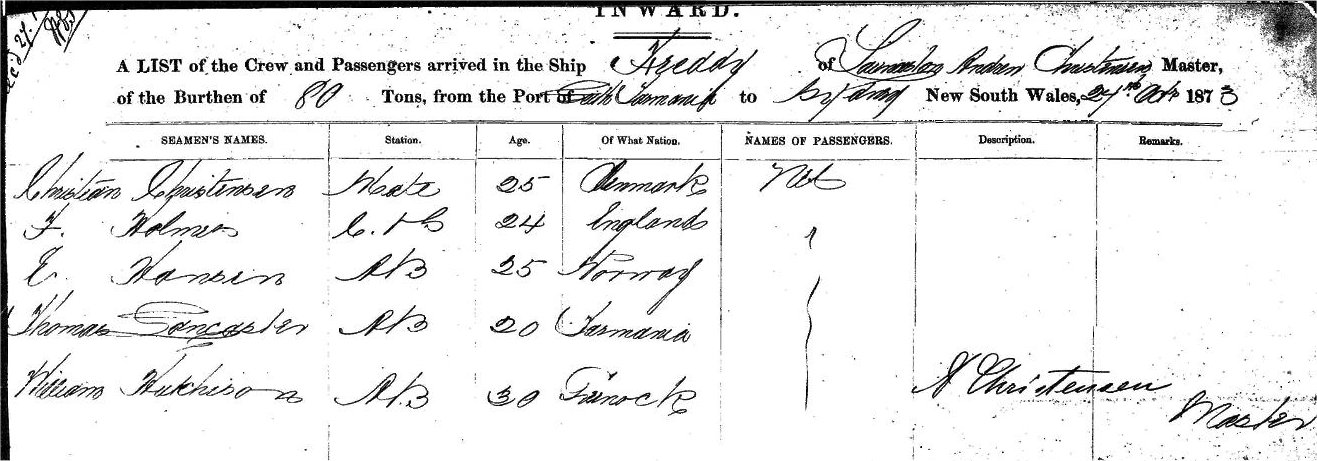 INWARD.
A LIST of the Crew and Passengers arrived in the Ship Freddy of Launceston Andrew Christensen Master,
of the Burthen of 80 Tons, from the Port of Tasmania to Sydney New South Wales, 27th 1873
SEAMEN'S NAMES. Station. Age. Of What Nation. NAMES OF PASSENGERS. Description. Remarks.
Christian Christensen Mate 25 Denmark Nil
F. Holmes 24 England
E. Hansen AB 25 Norway
Thomas Lancaster AB 20 Tasmania
William Hutchison AB 30
A Christensen
Master